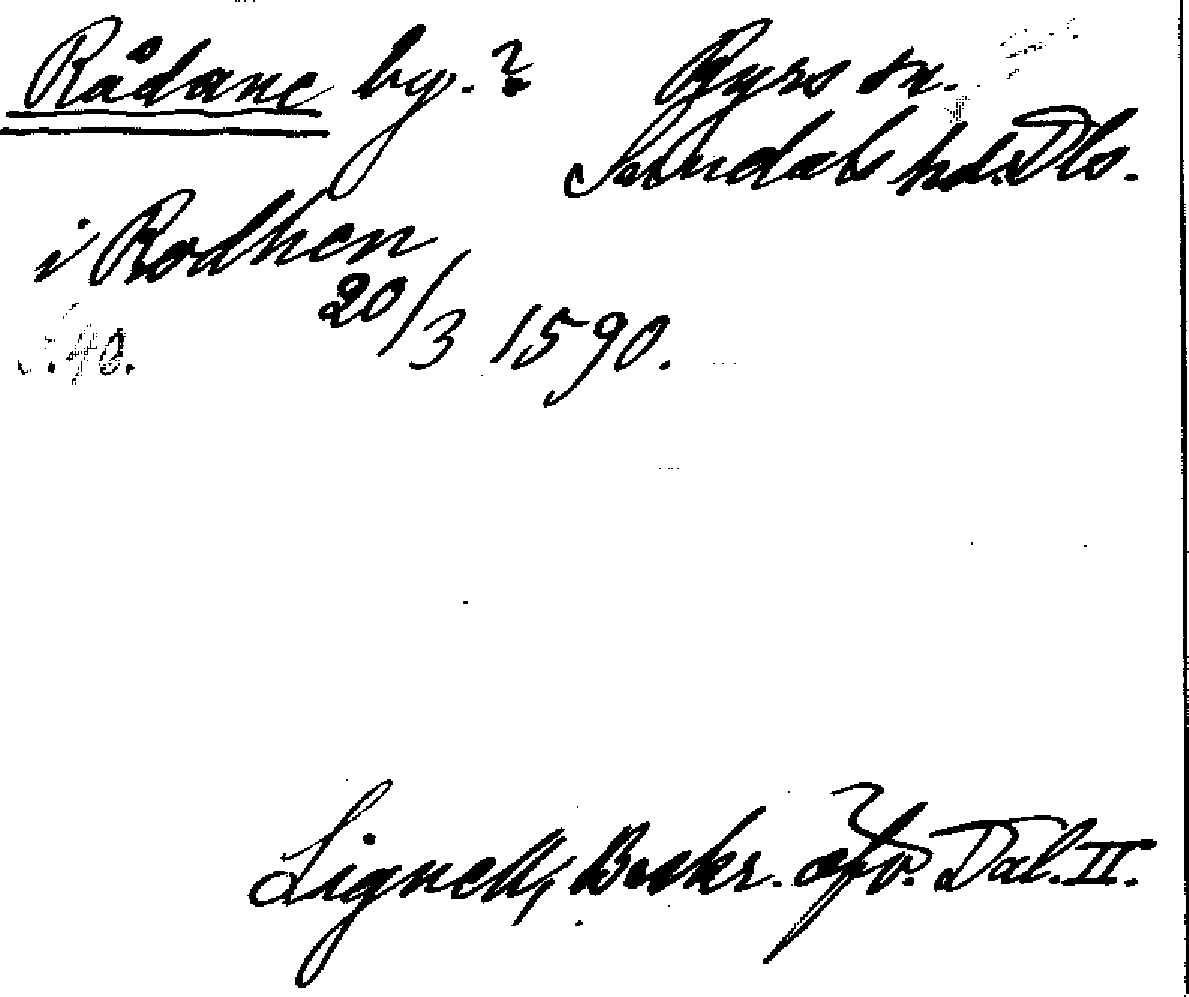 Rådane by. ? Ryrs sn.
Sundals hd. Dls.
i Rodhen
20/3 1590.
S. 40.
Lignell, Beskr. öfv. Dal. II.